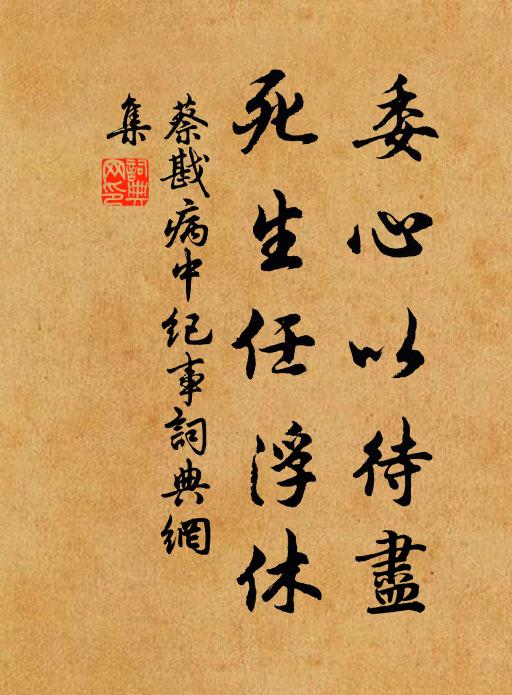 委心以待盡
死生任浮休
蔡戡病中纪事詞典網
集
詞典
网印